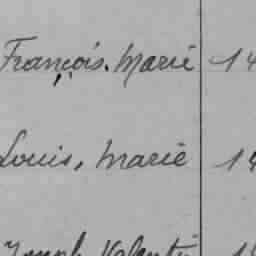 François. Marie 14
Louis, Marie 14
Joseph Valentin